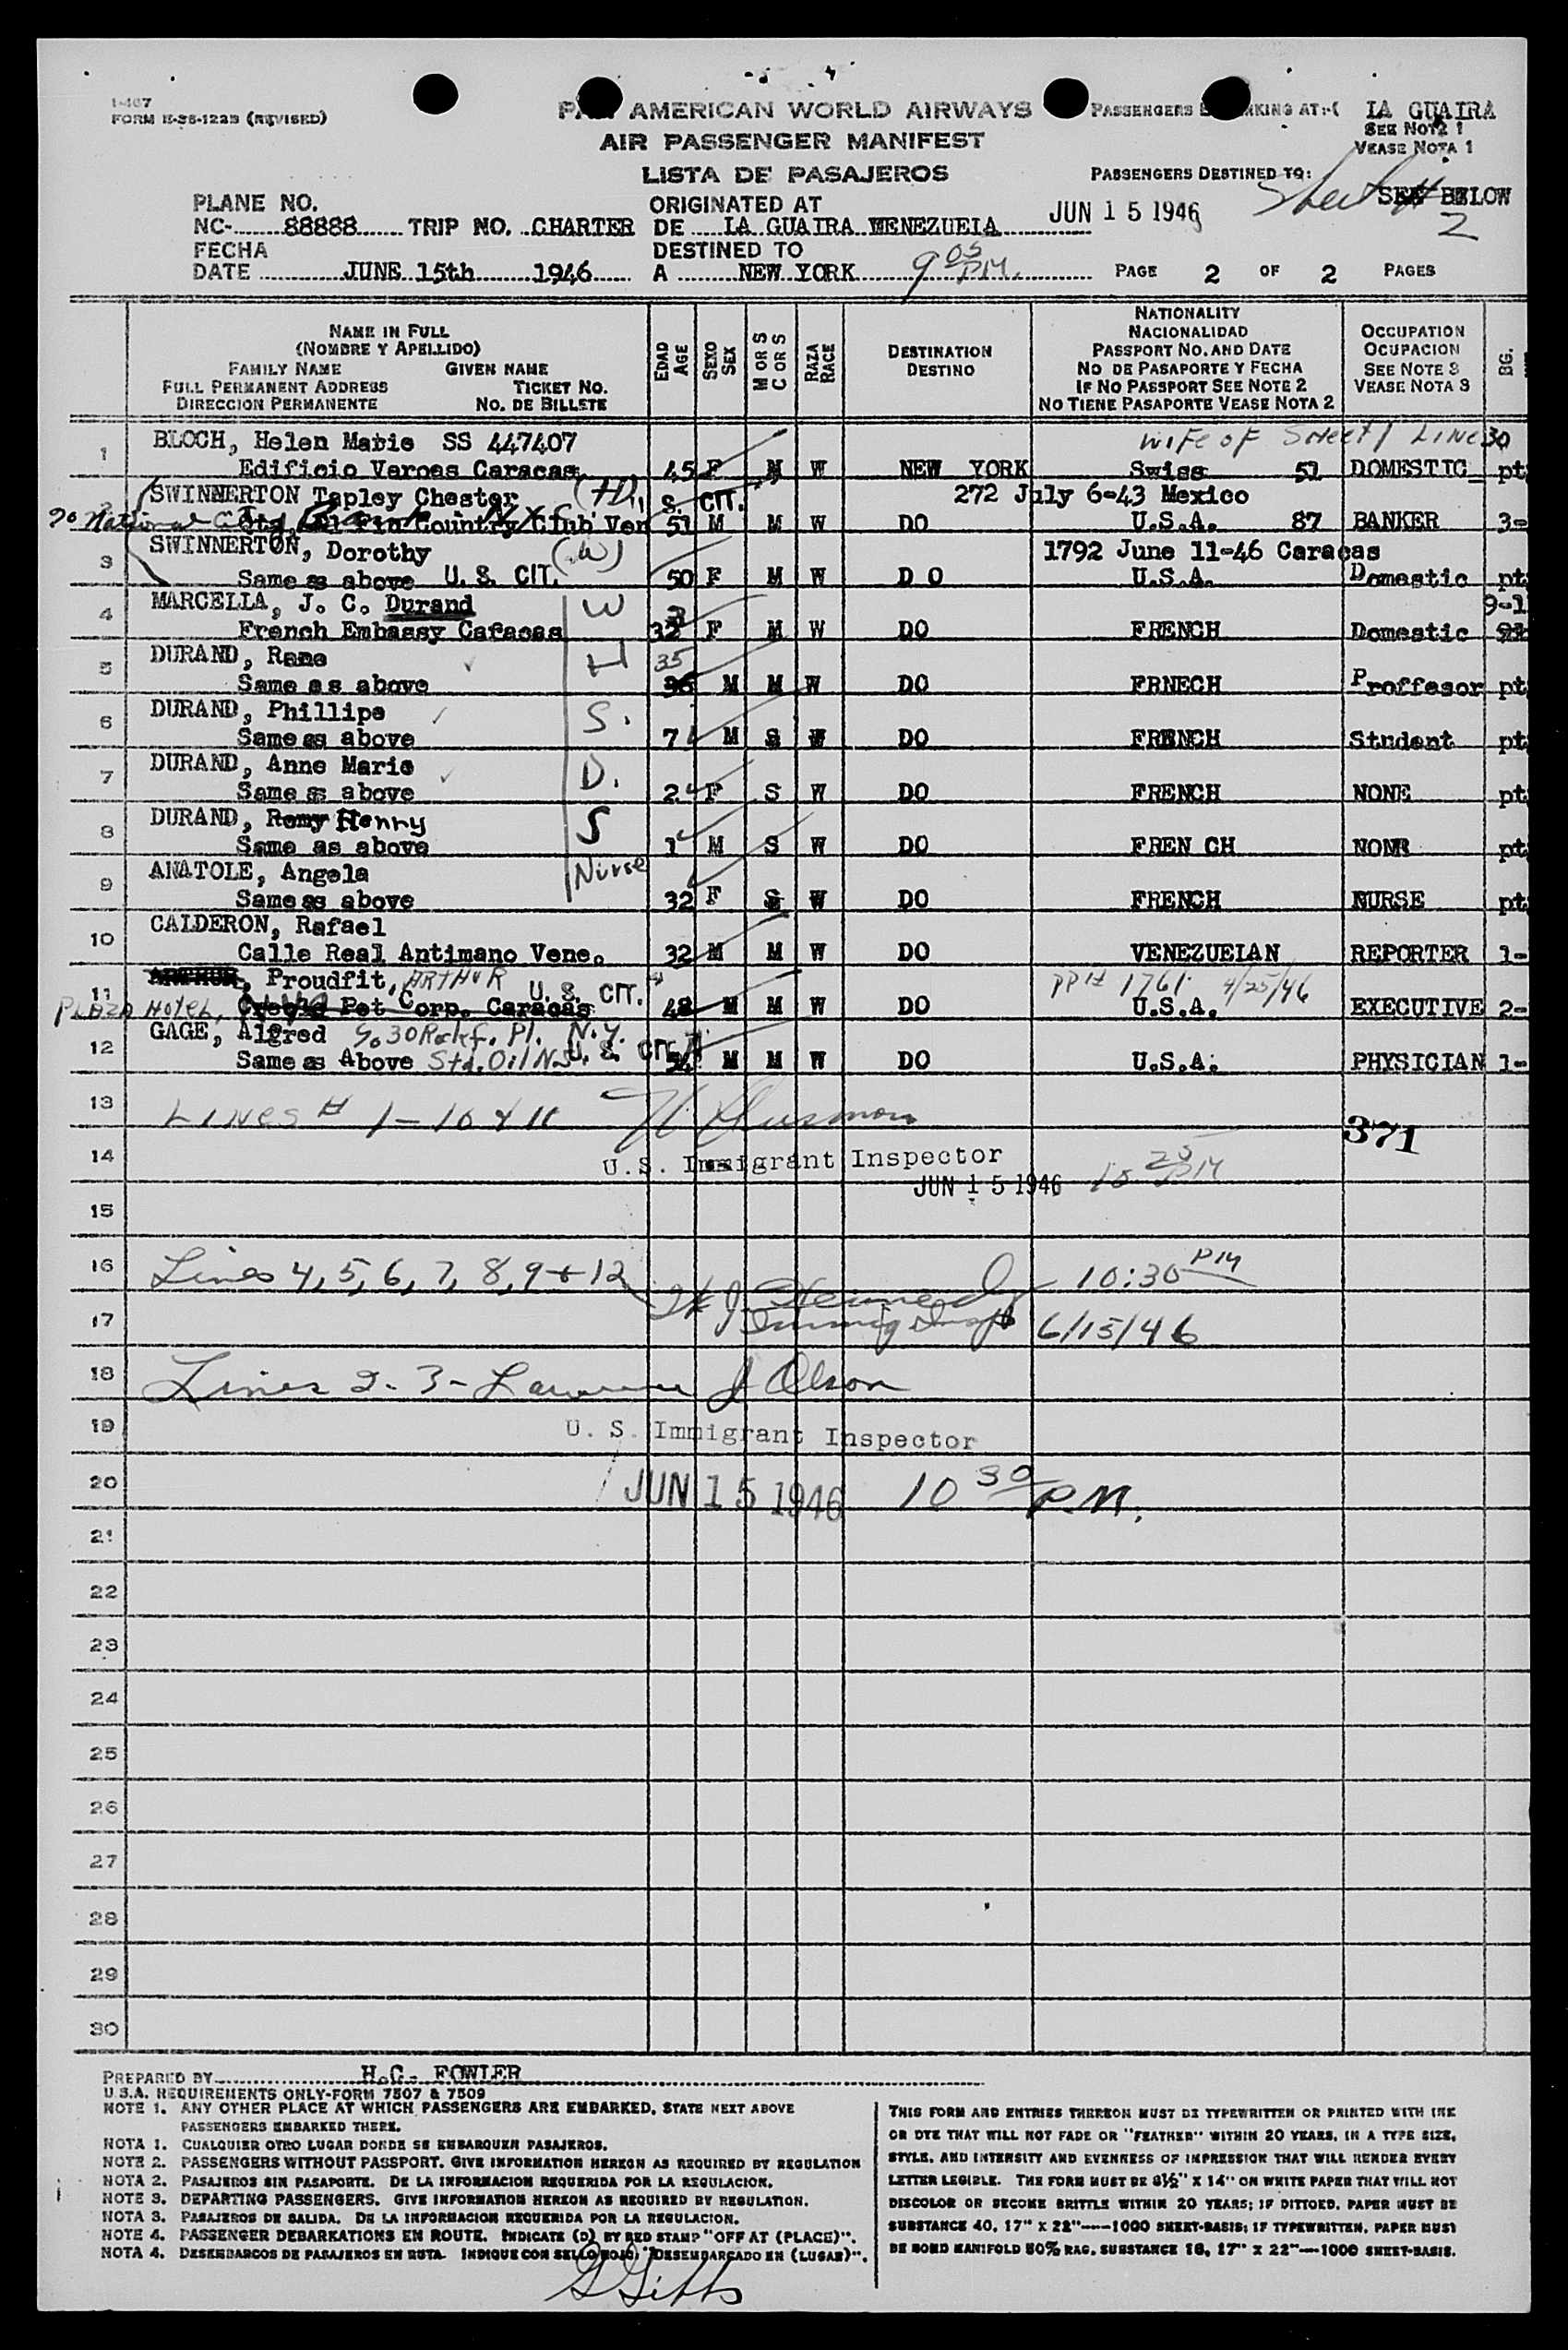 I-467
FORM E-36-1223 (REVISED)
AMERICAN WORLD AIRWAYS
AIR PASSENGER MANIFEST
LISTA DE PASAJEROS
PASSENGERS EMBARKING AT:-( LA GUAIRA
SEE NOTE 1
VEASE NOTA 1
PASSENGERS DESTINED TO: SEE BELOW
Sheet # 2
PLANE NO.
NC- 88888 TRIP NO. CHARTER
ORIGINATED AT
DE LA GUAIRA VENEZUELA
JUN 15 1946
FECHA
DATE JUNE 15th 1946
DESTINED TO
A NEW YORK 9 05 PM.
PAGE 2 OF 2 PAGES
NAME IN FULL
(NOMBRE Y APELLIDO)
FAMILY NAME GIVEN NAME
FULL PERMANENT ADDRESS TICKET NO.
DIRECCION PERMANENTE NO. DE BILLETE
EDAD AGE
SEXO SEX
M OR S C OR S
RAZA RACE
DESTINATION
DESTINO
NATIONALITY
NACIONALIDAD
PASSPORT NO. AND DATE
NO DE PASAPORTE Y FECHA
IF NO PASSPORT SEE NOTE 2
NO TIENE PASAPORTE VEASE NOTA 2
OCCUPATION
OCUPACION
SEE NOTE 3
VEASE NOTA 3
BG.
1 BLOCH, Helen Marie SS 447407 Wife of Sheet 1 Line 30
Edificio Vargas Caracas 45 F M W NEW YORK Swiss 51 DOMESTIC pt
2 SWINNERTON Tapley Chester (H) U. S. CIT. 272 July 6-43 Mexico
% National City Bank - N.Y. Country Club Ven 51 M M W DO U.S.A. 87 BANKER 3-
3 SWINNERTON, Dorothy (W) 1792 June 11-46 Caracas
Same as above U. S. CIT. 50 F M W D O U.S.A. Domestic pt
4 MARCELLA, J. C. Durand W 9-1
French Embassy Cafacas 32 F M W DO FRENCH Domestic
5 DURAND, Rene H 35
Same as above 36 M M W DO FRNECH Proffesor pt
6 DURAND, Phillipe S.
Same as above 7 M S W DO FRENCH Student pt
7 DURAND, Anne Marie D.
Same as above 2 F S W DO FRENCH NONE pt
8 DURAND, Remy Henry S
Same as above 1 M S W DO FREN CH NONE pt
9 ANATOLE, Angela Nurse
Same as above 32 F S W DO FRENCH NURSE pt
10 CALDERON, Rafael
Calle Real Antimano Vene. 32 M M W DO VENEZUELAN REPORTER 1-
11 ARTHUR, Proudfit, ARTHUR U. S. CIT. PP# 1761 4/25/46
PLAZA HOTEL, Creole Pet Corp. Caracas 48 M M W DO U.S.A. EXECUTIVE 2-
12 GAGE, Alfred % 30 Rockf. Pl. N.Y. U. S. CIT.
Same as Above Std. Oil NJ 54 M M W DO U.S.A. PHYSICIAN 1-
13 LINES # 1-10 & 11
371
14 U.S. Immigrant Inspector
JUN 15 1946 10 25 PM
15
16 Lines 4, 5, 6, 7, 8, 9 + 12 10:30 PM
17 Immig Insp 6/15/46
18 Lines 2-3- Lawrence J Olson
19 U. S. Immigrant Inspector
20 JUN 15 1946 10 30 P.M.
21
22
23
24
25
26
27
28
29
30
PREPARED BY H.C. FOWLER
U.S.A. REQUIREMENTS ONLY-FORM 7507 & 7509
NOTE 1. ANY OTHER PLACE AT WHICH PASSENGERS ARE EMBARKED, STATE NEXT ABOVE
PASSENGERS EMBARKED THERE.
NOTA 1. CUALQUIER OTRO LUGAR DONDE SE EMBARQUEN PASAJEROS.
NOTE 2. PASSENGERS WITHOUT PASSPORT. GIVE INFORMATION HEREON AS REQUIRED BY REGULATION
NOTA 2. PASAJEROS SIN PASAPORTE. DE LA INFORMACION REQUERIDA POR LA REGULACION.
NOTE 3. DEPARTING PASSENGERS. GIVE INFORMATION HEREON AS REQUIRED BY REGULATION.
NOTA 3. PASAJEROS DE SALIDA. DE LA INFORMACION REQUERIDA POR LA REGULACION.
NOTE 4. PASSENGER DEBARKATIONS EN ROUTE. INDICATE (D) BY RED STAMP "OFF AT (PLACE)".
NOTA 4. DESEMBARCOS DE PASAJEROS EN RUTA. INDIQUE CON SELLO ROJO "DESEMBARCADO EN (LUGAR)".
THIS FORM AND ENTRIES THEREON MUST BE TYPEWRITTEN OR PRINTED WITH INK
OR DYE THAT WILL NOT FADE OR "FEATHER" WITHIN 20 YEARS, IN A TYPE SIZE,
STYLE, AND INTENSITY AND EVENNESS OF IMPRESSION THAT WILL RENDER EVERY
LETTER LEGIBLE. THE FORM MUST BE 8½" X 14" ON WHITE PAPER THAT WILL NOT
DISCOLOR OR BECOME BRITTLE WITHIN 20 YEARS; IF DITTOED, PAPER MUST BE
SUBSTANCE 40, 17" X 22"—1000 SHEET-BASIS; IF TYPEWRITTEN, PAPER MUST
BE BOND MANIFOLD 50% RAG, SUBSTANCE 16, 17" X 22"—1000 SHEET-BASIS.